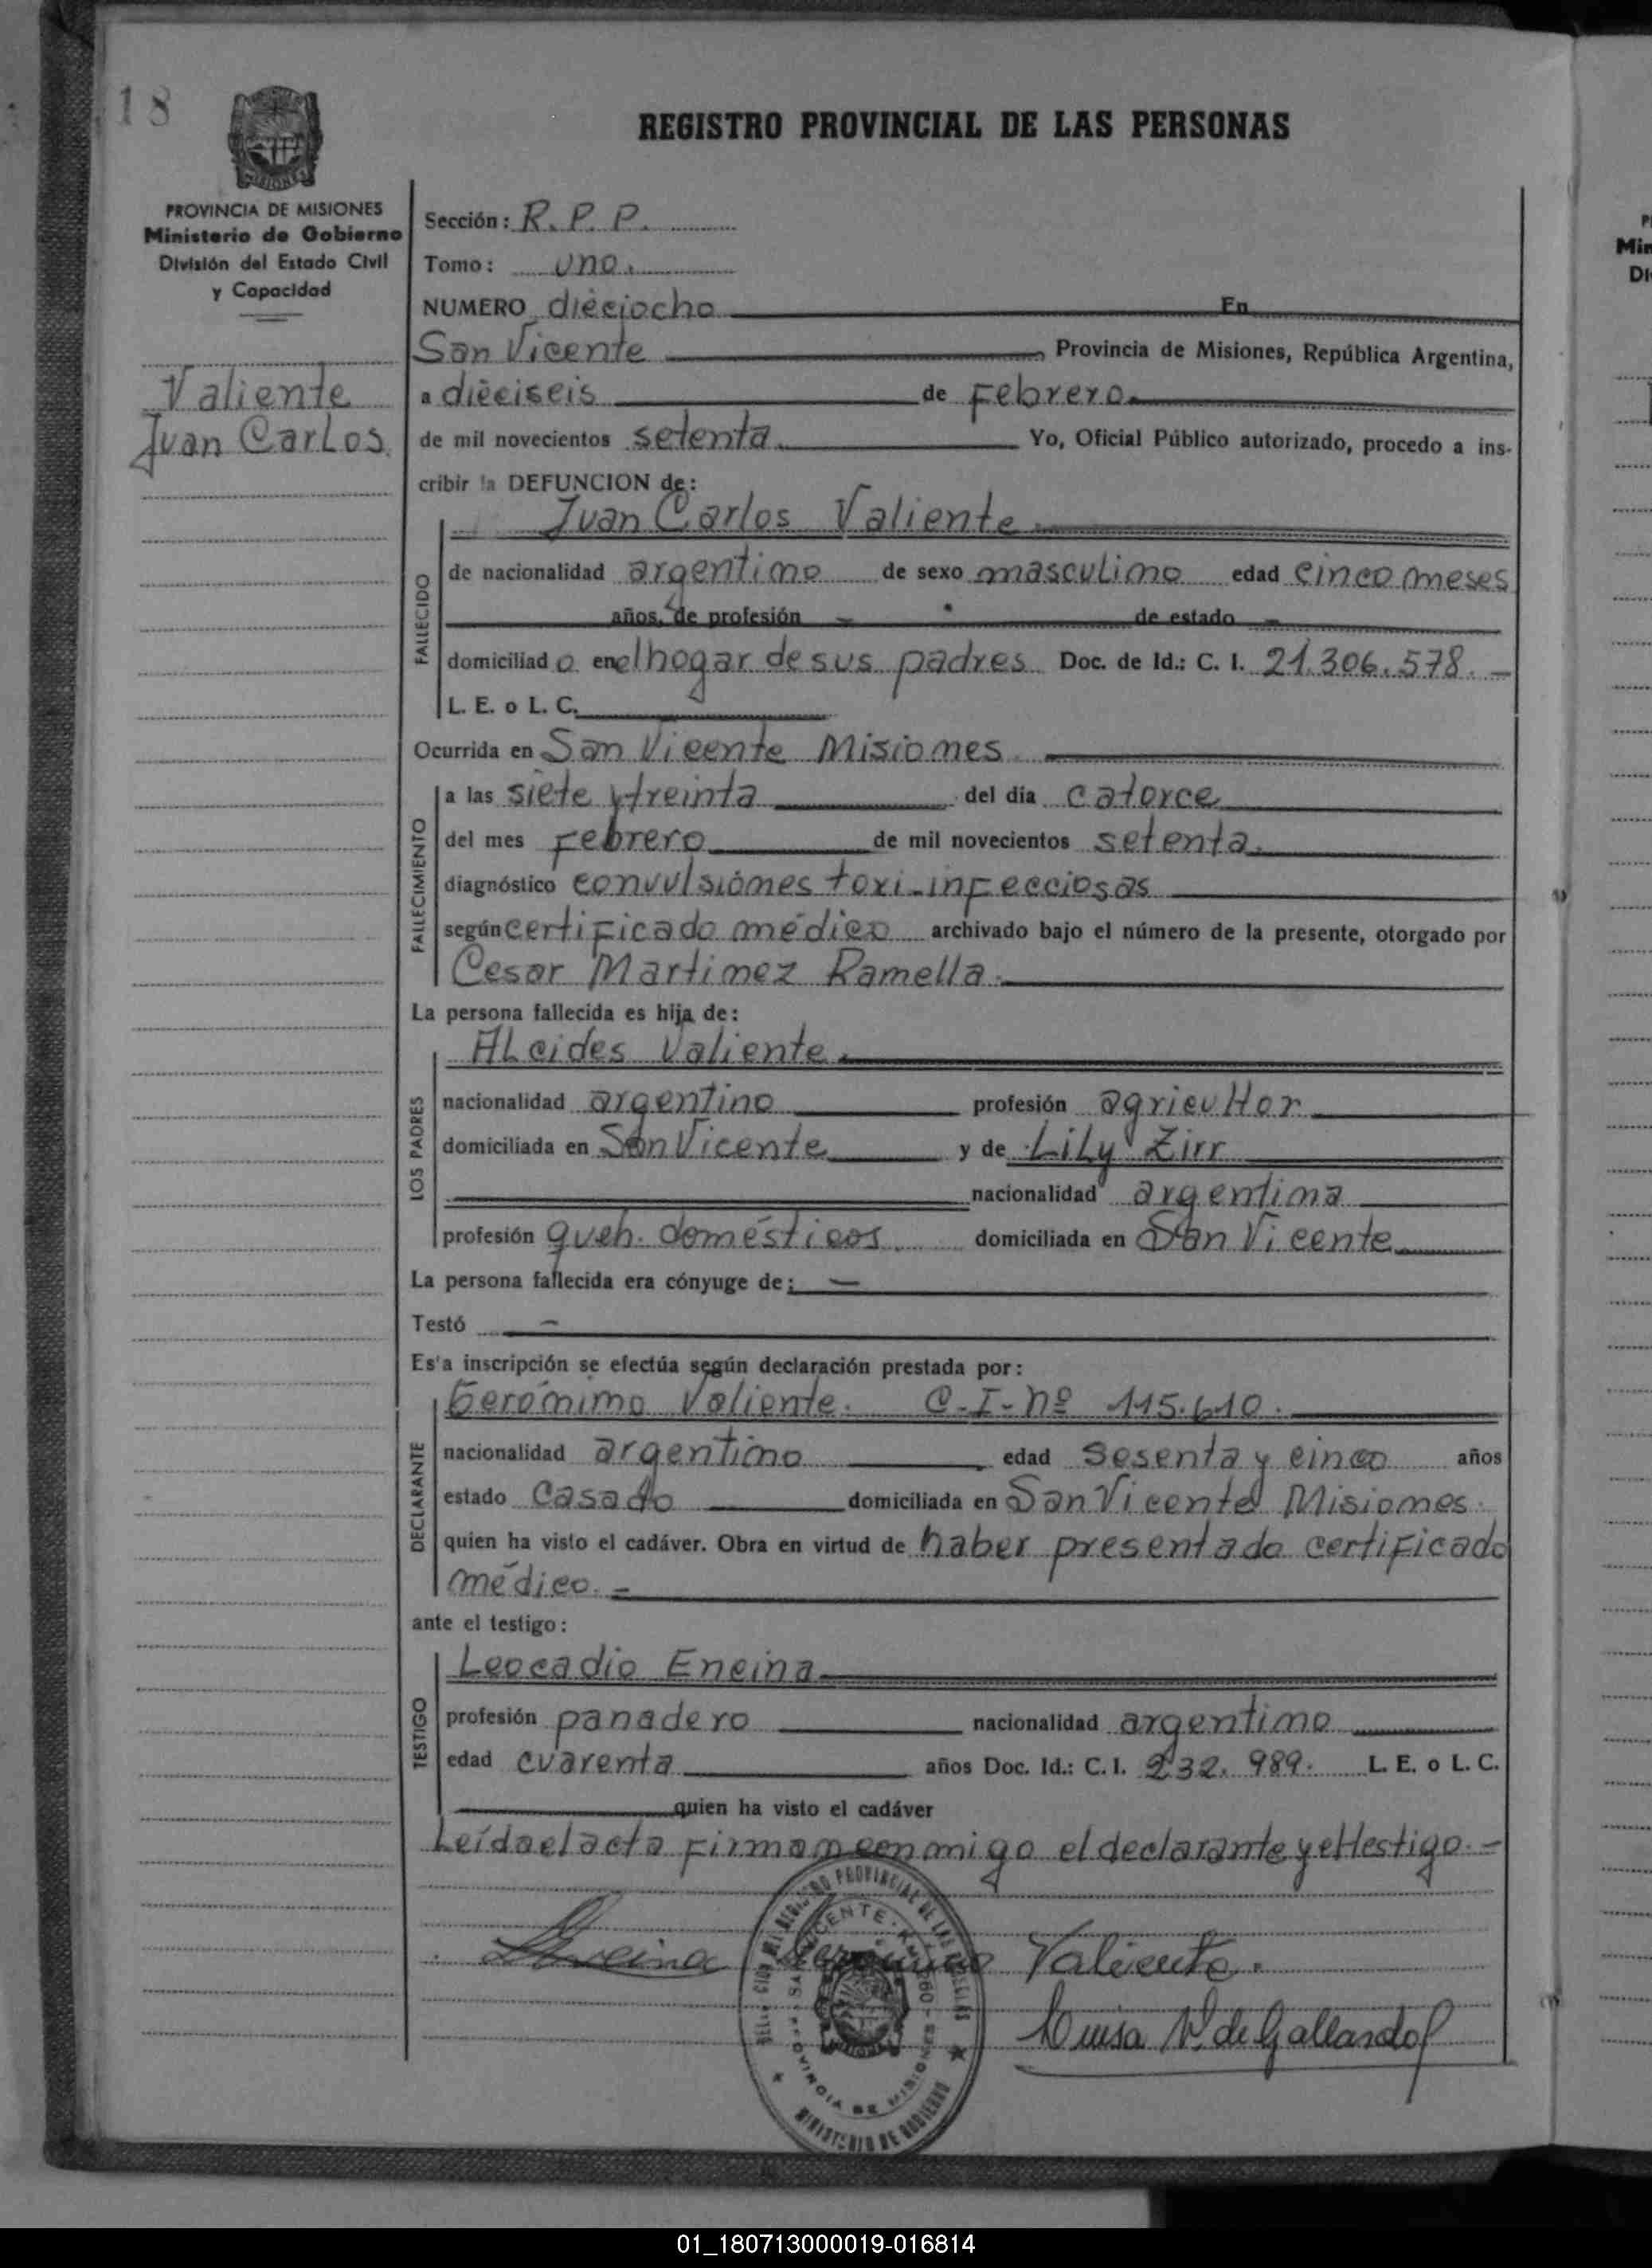 18
REGISTRO PROVINCIAL DE LAS PERSONAS
PROVINCIA DE MISIONES
Ministerio de Gobierno
División del Estado Civil
y Capacidad
Valiente
Juan Carlos
Sección: R. P. P.
Tomo: uno.
NUMERO dieciocho En
San Vicente Provincia de Misiones, República Argentina,
a dieciseis de Febrero
de mil novecientos setenta. Yo, Oficial Público autorizado, procedo a ins-
cribir la DEFUNCION de:
Juan Carlos Valiente
FALLECIDO
de nacionalidad argentino de sexo masculino edad cinco meses
años, de profesión — de estado —
domiciliado en el hogar de sus padres Doc. de Id.: C. I. 21.306.578. —
L. E. o L. C.
Ocurrida en San Vicente Misiones
FALLECIMIENTO
a las siete y treinta del día catorce
del mes Febrero de mil novecientos setenta.
diagnóstico convulsiones toxi-infecciosas
según certificado médico archivado bajo el número de la presente, otorgado por
Cesar Martinez Ramella.
La persona fallecida es hija de:
LOS PADRES
ALcides Valiente
nacionalidad argentino profesión agricultor
domiciliada en San Vicente y de LiLy Zirr
nacionalidad argentina
profesión queh. domésticos. domiciliada en San Vicente
La persona fallecida era cónyuge de: —
Testó —
Esta inscripción se efectúa según declaración prestada por:
DECLARANTE
Gerónimo Valiente. C-I-nº 115.610.
nacionalidad argentino edad sesenta y cinco años
estado casado domiciliada en San Vicente Misiones.
quien ha visto el cadáver. Obra en virtud de haber presentado certificado
médico. —
ante el testigo:
TESTIGO
Leocadio Encina
profesión panadero nacionalidad argentino
edad cuarenta años Doc. Id.: C. I. 232.989. L. E. o L. C.
quien ha visto el cadáver
Leída el acta firman conmigo el declarante y el testigo. —
Encina Geronimo Valiente.
Luisa V. de Gallardo
REGISTRO PROVINCIAL DE LAS PERSONAS
SAN VICENTE
PROVINCIA DE MISIONES
MINISTERIO DE GOBIERNO
Min
01_180713000019-016814